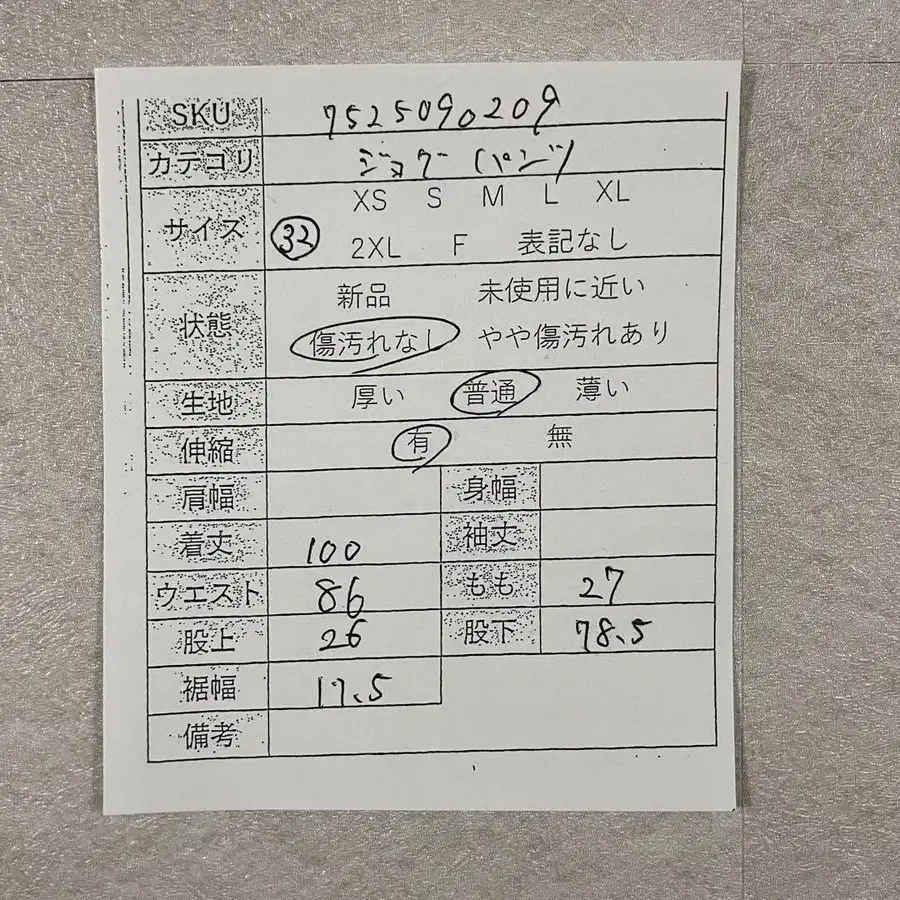 SKU 7525090209
カテゴリ ジョグパンツ
サイズ XS S M L XL
32 2XL F 表記なし
状態 新品 未使用に近い
傷汚れなし やや傷汚れあり
生地 厚い 普通 薄い
伸縮 有 無
肩幅 身幅
着丈 100 袖丈
ウエスト 86 もも 27
股上 26 股下 78.5
裾幅 17.5
備考